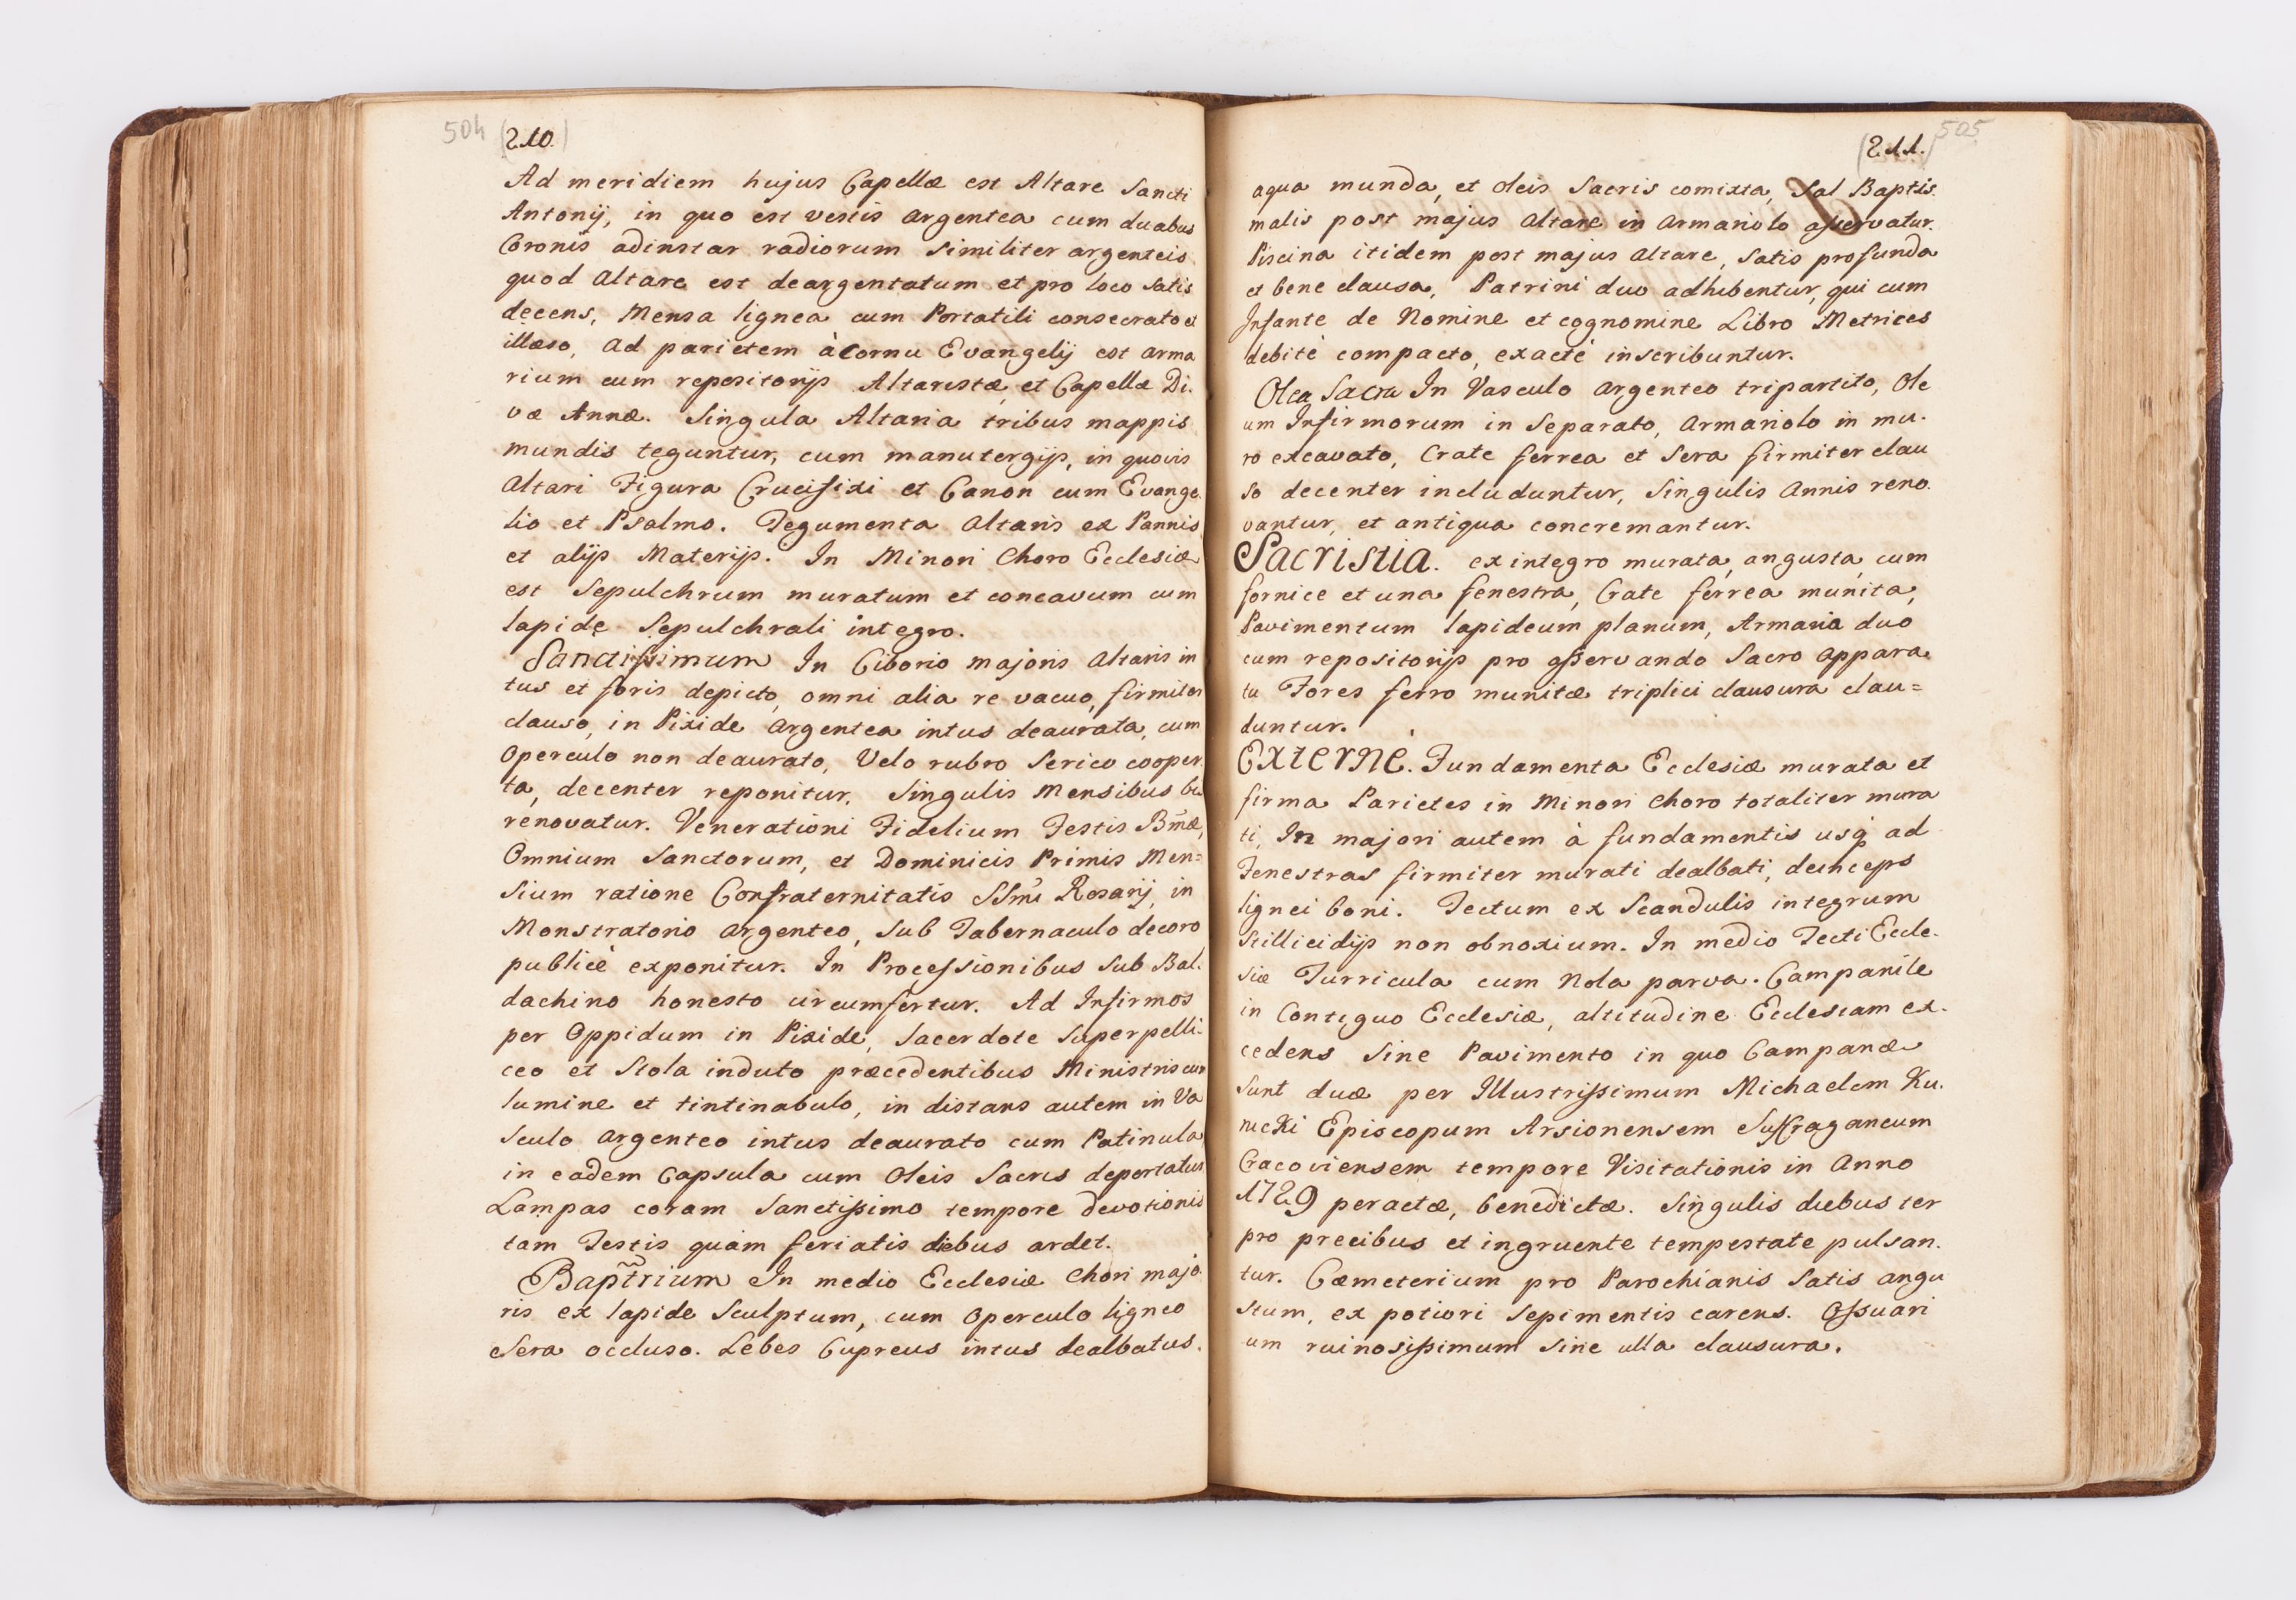 504 (210.)
Ad meridiem hujus Capellæ est Altare Sancti
Antonij, in quo est vestis argentea cum duabus
Coronis adinstar radiorum similiter argenteis
quod Altare est deargentatum et pro loco satis
decens, Mensa lignea cum Portatili consecrato et
illæso, Ad parietem à Cornu Evangelij est arma
rium cum repositorijs Altaristæ, et Capellæ Di-
væ Annæ. Singula Altaria tribus mappis
mundis teguntur, cum manutergijs, in quovis
Altari Figura Crucifixi et Canon cum Evange
lio et Psalmo. Tegumenta Altaris ex Pannis
et alijs Materijs. In Minori Choro Ecclesiæ
est Sepulchrum muratum et concavum cum
lapide Sepulchrali integro.
Sanctissimum In Ciborio majoris Altaris in
tus et foris depicto, omni alia re vacuo, firmiter
clauso, in Pixide Argentea intus deaurata, cum
Operculo non deaurato, Velo rubro Serico cooper
ta, decenter reponitur. Singulis Mensibus bis
renovatur. Venerationi Fidelium Festis Bmæ,
Omnium Sanctorum, et Dominicis Primis Men=
sium ratione Confraternitatis SSmi Rosarij, in
Monstratorio argenteo, sub Tabernaculo decoro
publicè exponitur. In Processionibus sub Bal-
dachino honesto circumfertur. Ad Infirmos
per Oppidum in Pixide, Sacerdote Superpelli-
ceo et Stola induto præcedentibus Ministris cum
lumine et tintinabulo, in distans autem in Va
sculo argenteo intus deaurato cum Patinula
in eadem Capsula cum Oleis Sacris deportatur
Lampas coram Sanctissimo tempore devotionis
tam Festis quàm feriatis diebus ardet.
Baptrium In medio Ecclesiæ Chori majo
ris ex lapide Sculptum, cum Operculo ligneo
Sera occluso. Lebes Cupreus intus dealbatus.
(211.) 505
aqua munda, et oleis Sacris comixta, Sal Baptis
malis post majus Altare in Armariolo asservatur.
Piscina itidem post majus Altare, Satis profunda
et bene clausa, Patrini duo adhibentur, qui cum
Infante de Nomine et cognomine Libro Metrices
debitè compacto, exactè inscribuntur.
Olea Sacra In Vasculo argenteo tripartito, Ole
um Infirmorum in Separato, Armariolo in mu-
ro excavato, Crate ferrea et Sera firmiter clau
so decenter includuntur, Singulis Annis reno
vantur, et antiqua concremantur.
Sacristia. ex integro murata, angusta, cum
fornice et una fenestra, Crate ferrea munita,
Pavimentum lapideum planum, Armaria duo
cum repositorijs pro asservando Sacro Appara-
tu Fores ferro munitæ triplici clausura clau=
duntur.
Externè. Fundamenta Ecclesiæ murata et
firma Parietes in Minori Choro totaliter mura
ti, In majori autem à fundamentis usq ad
Fenestras firmiter murati dealbati, deinceps
lignei boni. Tectum ex Scandulis integrum
Stillicidijs non obnoxium. In medio Tecti Eccle-
siæ Turricula cum Nola parva. Campanile
in Contiguo Ecclesiæ, altitudine Ecclesiam ex-
cedens Sine Pavimento in quo Campanæ
sunt duæ per Illustrissimum Michaelem Ku-
nicki Episcopum Arsionensem Suffraganeum
Cracoviensem tempore Visitationis in Anno
1729 peractæ, benedictæ. Singulis diebus ter
pro precibus et ingruente tempestate pulsan-
tur. Cæmeterium pro Parochianis Satis angu
stum, ex potiori Sepimentis carens. Ossuari
um ruinosissimum Sine ulla clausura.